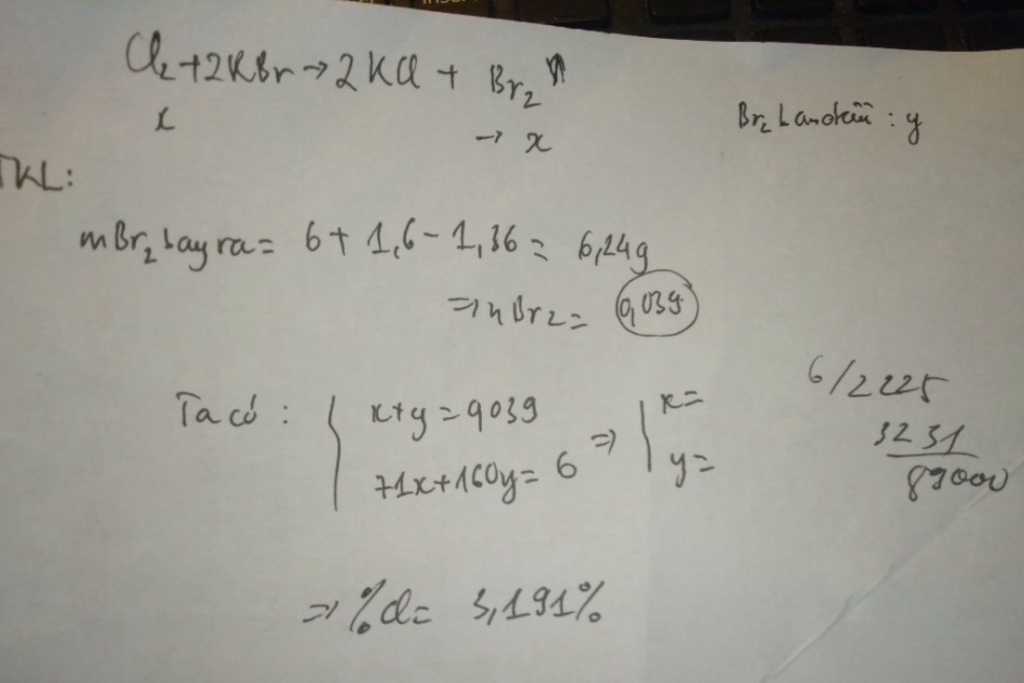 Cl₂+2KBr→2KCl + Br₂ ↑
x → x
Br₂ ban đầu : y
TKL:
mBr₂ bay ra = 6+ 1,6- 1,36 = 6,24g
⇒ nBr2 = 0,039
Ta có : { x+y = 0,039 ⇒ { x=
71x+160y = 6 y=
6/2225
3231
89000
⇒ %Cl = 3,191%